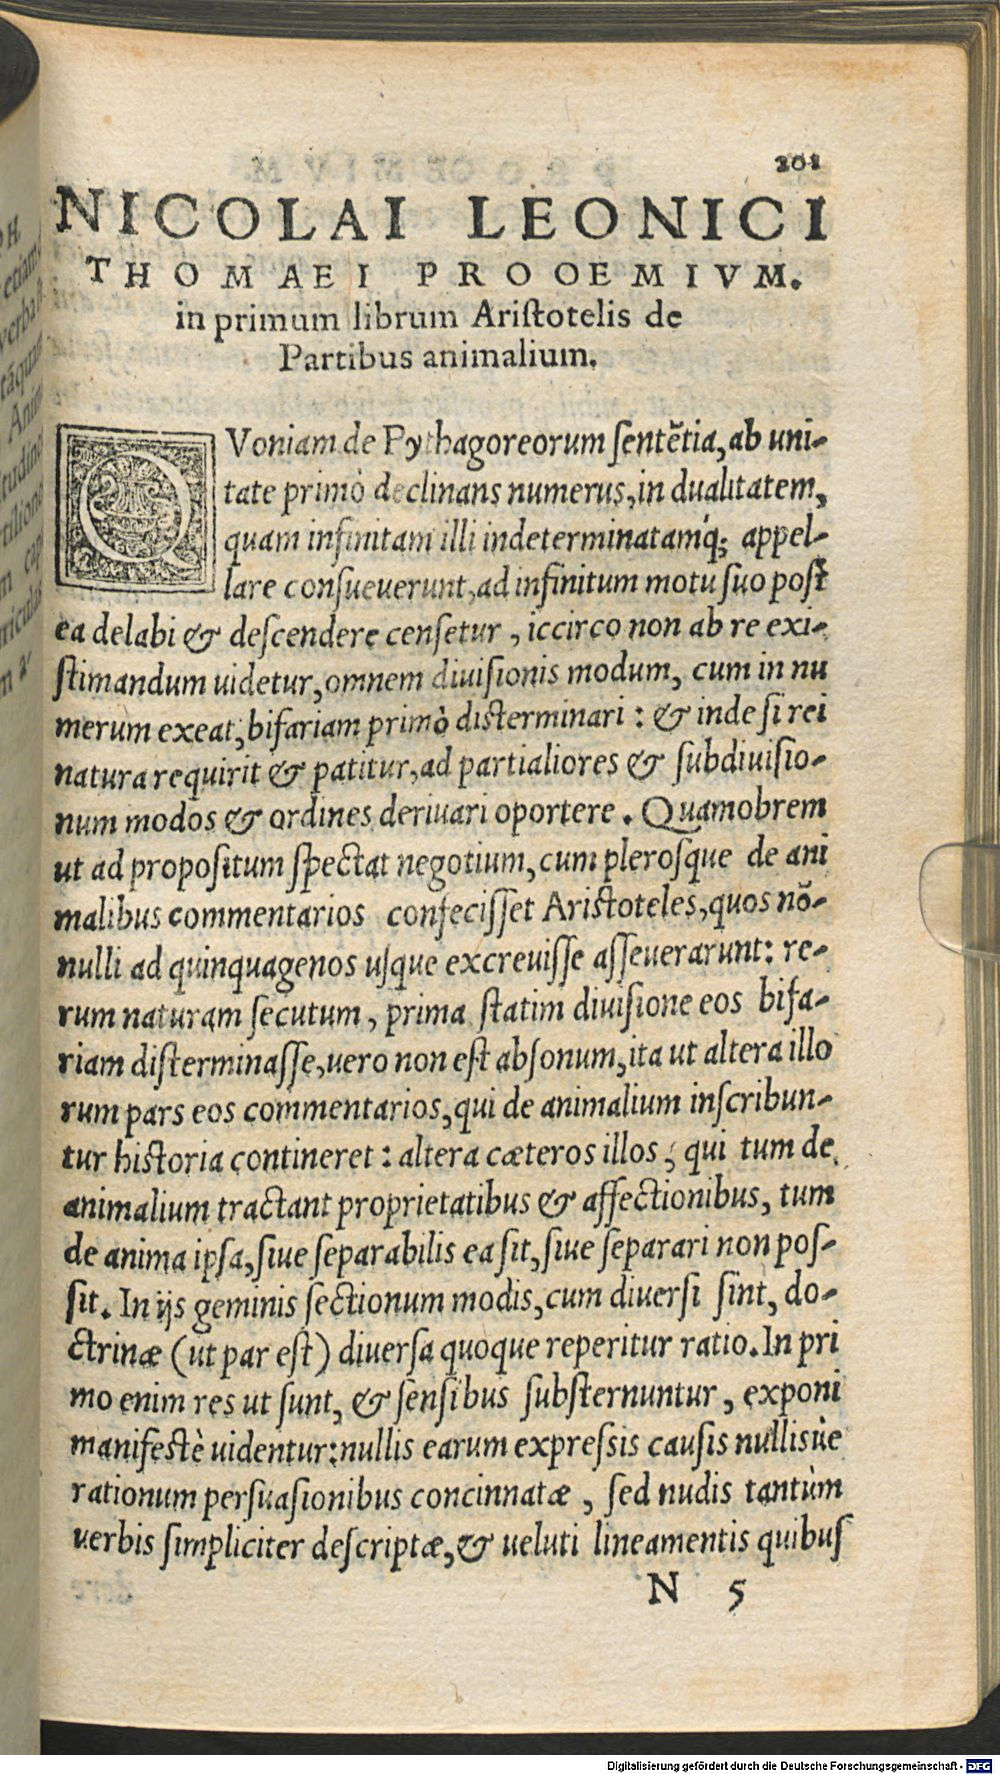 201
NICOLAI LEONICI
THOMAEI PROOEMIVM.
in primum librum Aristotelis de
Partibus animalium.
QVoniam de Pythagoreorum sentẽtia, ab uni-
tate primò declinans numerus, in dualitatem,
quam infinitam illi indeterminatamq́; appel-
lare consueverunt, ad infinitum motu suo post
ea delabi & descendere censetur, iccirco non ab re exi-
stimandum uidetur, omnem diuisionis modum, cum in nu
merum exeat, bifariam primò disterminari: & inde si rei
natura requirit & patitur, ad partialiores & subdiuisio-
num modos & ordines deriuari oportere. Quamobrem
ut ad propositum spectat negotium, cum plerosque de ani
malibus commentarios confecisset Aristoteles, quos nõ-
nulli ad quinquagenos usque excreuisse asseuerarunt: re-
rum naturam secutum, prima statim diuisione eos bifa-
riam disterminasse, uero non est absonum, ita ut altera illo
rum pars eos commentarios, qui de animalium inscribun-
tur historia contineret: altera cæteros illos; qui tum de
animalium tractant proprietatibus & affectionibus, tum
de anima ipsa, siue separabilis ea sit, siue separari non pos-
sit. In ijs geminis sectionum modis, cum diuersi sint, do-
ctrinæ (ut par est) diuersa quoque reperitur ratio. In pri
mo enim res ut sunt, & sensibus substernuntur, exponi
manifestè uidentur: nullis earum expressis causis nullisùe
rationum persuasionibus concinnatæ, sed nudis tantùm
verbis simpliciter descriptæ, & ueluti lineamentis quibus
N 5
Digitalisierung gefördert durch die Deutsche Forschungsgemeinschaft - DFG